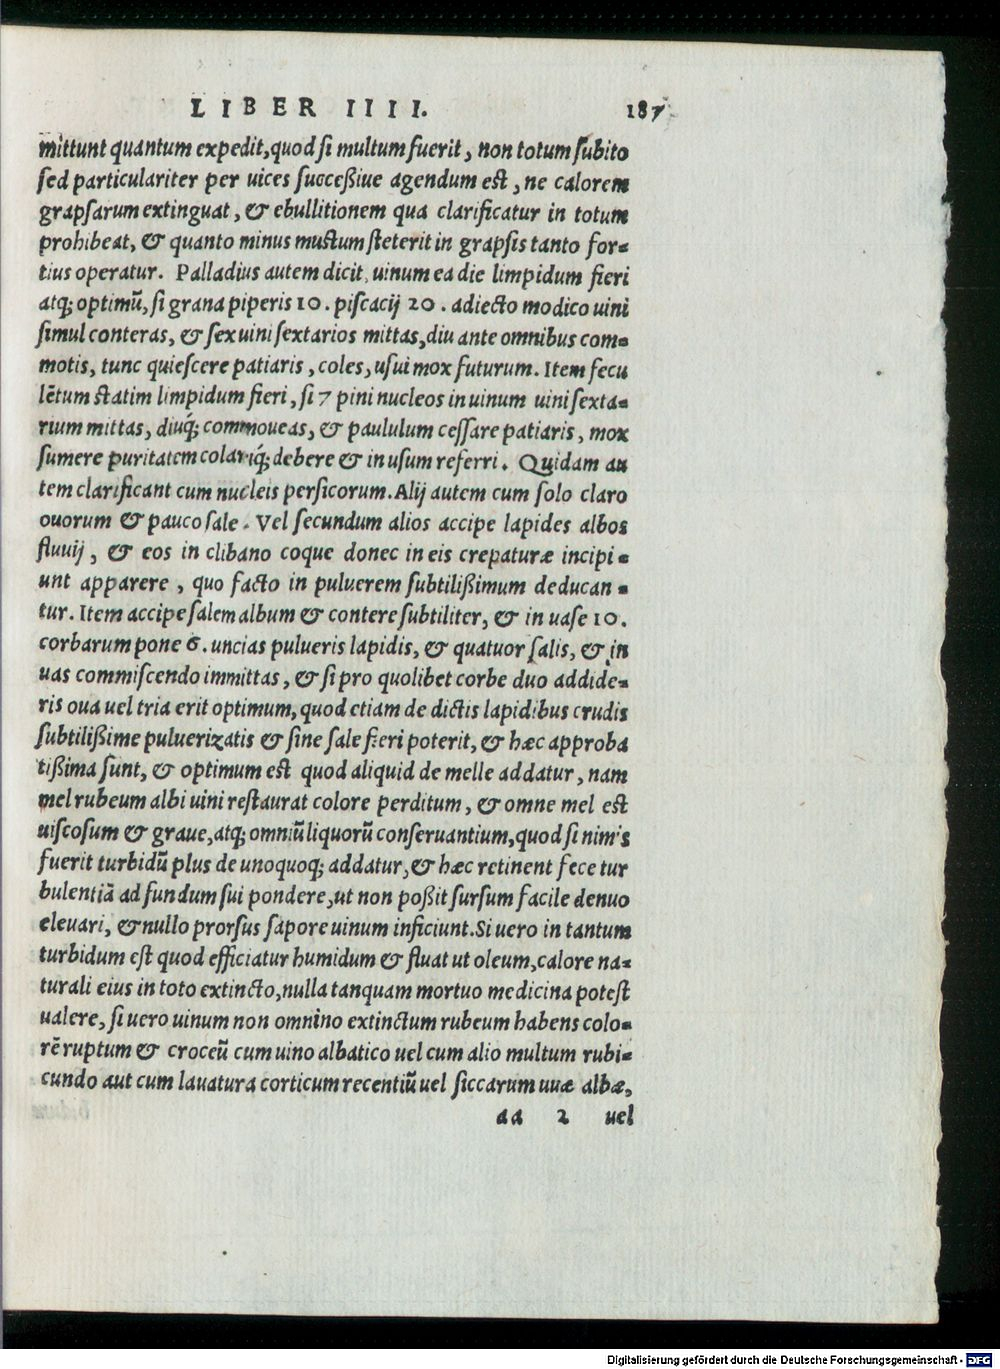 LIBER IIII. 187
mittunt quantum expedit, quod si multum fuerit, non totum subito
sed particulariter per uices succeßiue agendum est, ne calorem
grapsarum extinguat, & ebullitionem qua clarificatur in totum
prohibeat, & quanto minus mustum steterit in grapsis tanto for-
tius operatur. Palladius autem dicit, uinum ea die limpidum fieri
atq; optimũ, si grana piperis 10. piscacij 20. adiecto modico uini
simul conteras, & sex uini sextarios mittas, diu ante omnibus com-
motis, tunc quiescere patiaris, coles, usui mox futurum. Item fecu
lẽtum statim limpidum fieri, si 7 pini nucleos in uinum uini sexta-
rium mittas, diuq́; commoueas, & paululum cessare patiaris, mox
sumere puritatem colariq́; debere & in usum referri. Quidam au
tem clarificant cum nucleis persicorum. Alij autem cum solo claro
ouorum & pauco sale. Vel secundum alios accipe lapides albos
fluuij, & eos in clibano coque donec in eis crepaturæ incipi-
unt apparere, quo facto in puluerem subtilißimum deducan-
tur. Item accipe salem album & contere subtiliter, & in uase 10.
corbarum pone 6. uncias pulueris lapidis, & quatuor salis, & in
uas commiscendo immittas, & si pro quolibet corbe duo addide-
ris oua uel tria erit optimum, quod etiam de dictis lapidibus crudis
subtilißime puluerizatis & sine sale fieri poterit, & hæc approba
tißima sunt, & optimum est quod aliquid de melle addatur, nam
mel rubeum albi uini restaurat colore perditum, & omne mel est
uiscosum & graue, atq; omniũ liquorũ conseruantium, quod si nimis
fuerit turbidũ plus de unoquoq; addatur, & hæc retinent fece tur
bulentiã ad fundum sui pondere, ut non poßit sursum facile denuo
eleuari, & nullo prorsus sapore uinum inficiunt. Si uero in tantum
turbidum est quod efficiatur humidum & fluat ut oleum, calore na-
turali eius in toto extincto, nulla tanquam mortuo medicina potest
ualere, si uero uinum non omnino extinctum rubeum habens colo-
rẽ ruptum & croceũ cum uino albatico uel cum alio multum rubi-
cundo aut cum lauatura corticum recentiũ uel siccarum uuæ albæ,
aa 2 uel
Digitalisierung gefördert durch die Deutsche Forschungsgemeinschaft - DFG